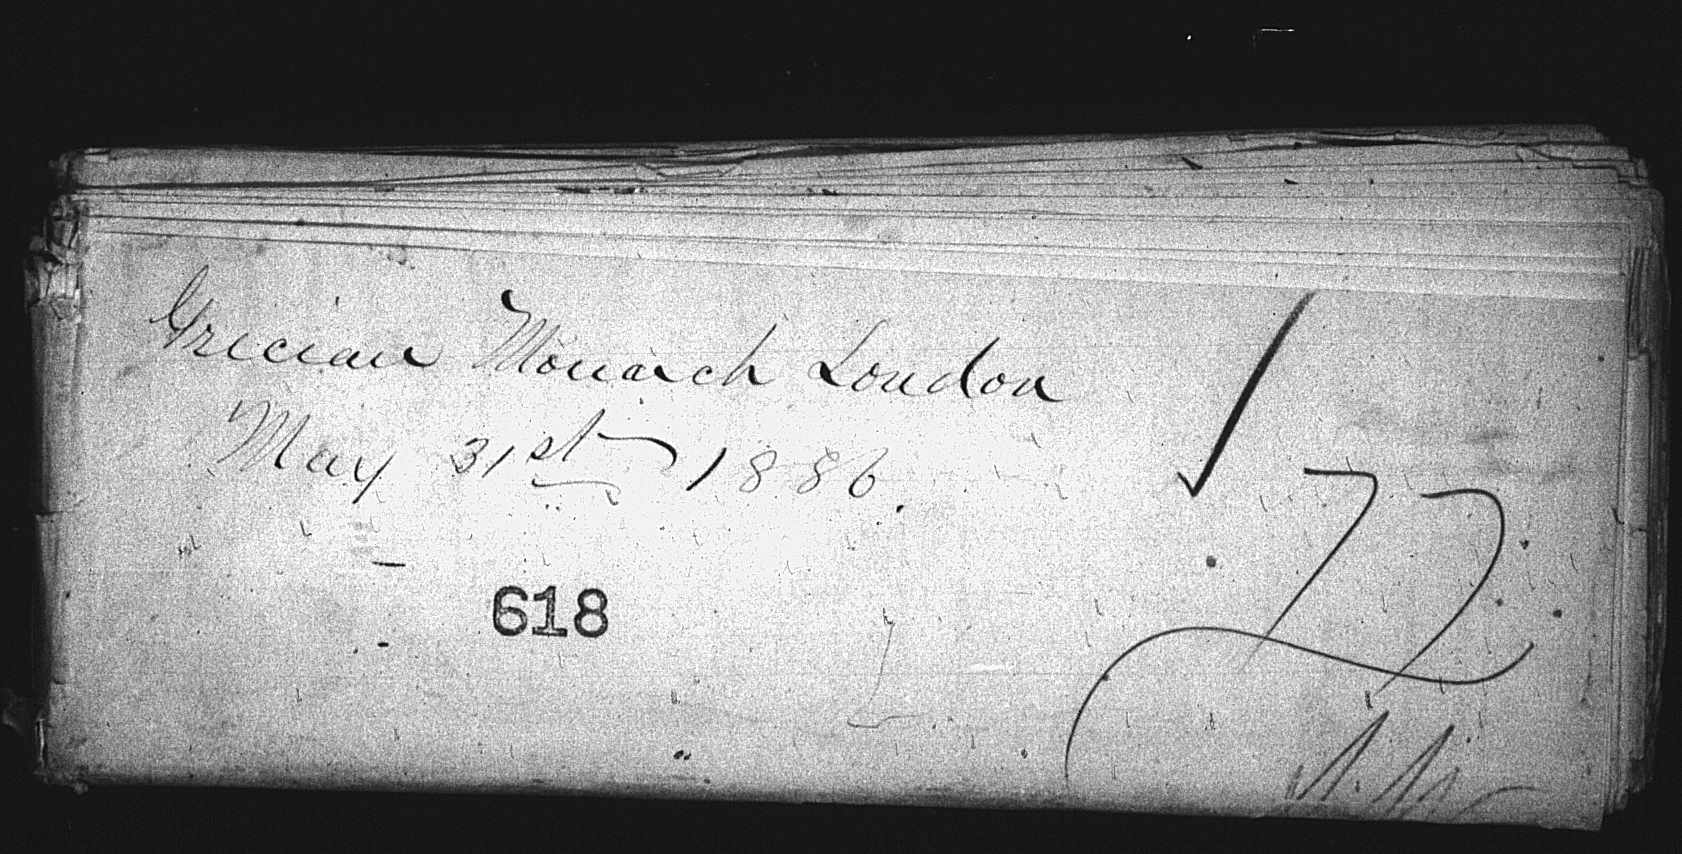 Grecian Monarch London
May 31st 1886.
77
618